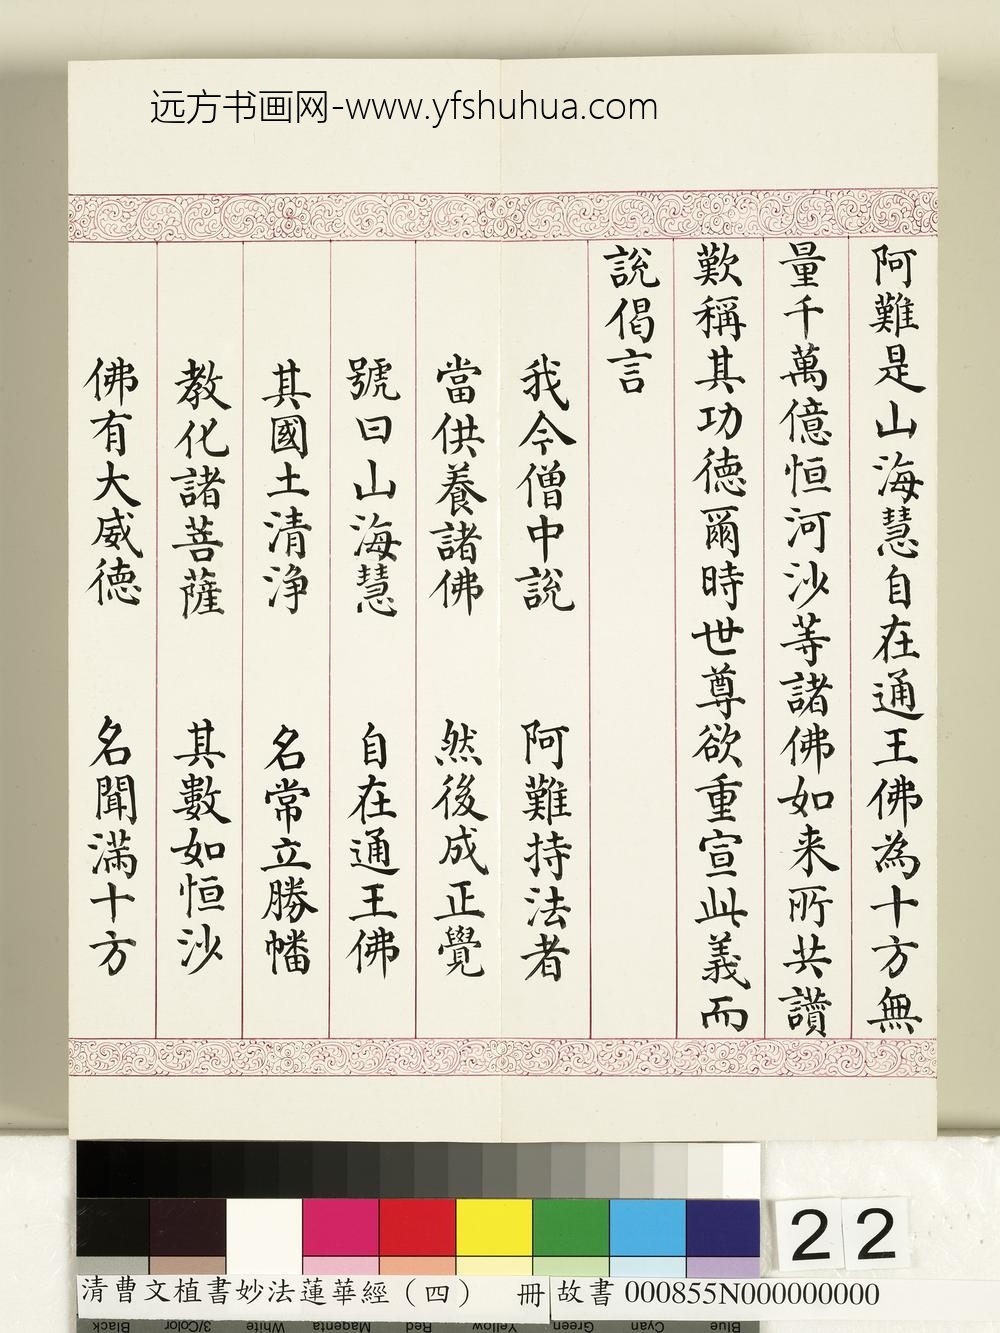 远方书画网-www.yfshuhua.com
阿難是山海慧自在通王佛為十方無
量千萬億恒河沙等諸佛如来所共讚
歎稱其功德爾時世尊欲重宣此義而
說偈言
我今僧中說 阿難持法者
當供養諸佛 然後成正覺
號曰山海慧 自在通王佛
其國土清淨 名常立勝幡
教化諸菩薩 其數如恒沙
佛有大威德 名聞滿十方
22
清曹文植書妙法蓮華經（四） 冊
故書 000855N000000000
Black 3/Color White Magenta Red Yellow Green Cyan Blue